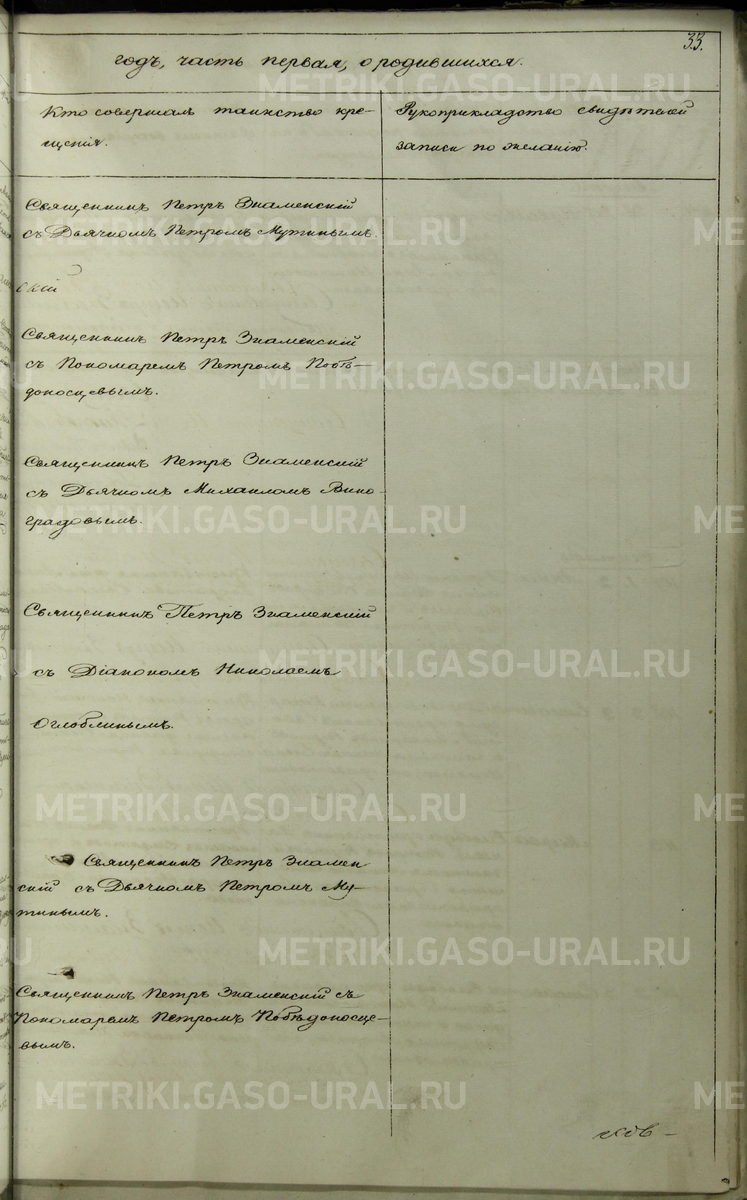 33.
годъ, часть первая, о родившихся.
Кто совершалъ таинство кре-
щенія.
Рукоприкладство свидѣтелей
записи по желанію.
Священникъ Петръ Знаменскій
съ Дьячкомъ Петромъ Мутинымъ.
скій
Священникъ Петръ Знаменскій
съ Пономаремъ Петромъ Побѣ-
доносцевымъ.
Священникъ Петръ Знаменскій
съ Дьячкомъ Михаиломъ Вино-
градовымъ.
Священникъ Петръ Знаменскій
съ Діакономъ Николаемъ
Оглоблинымъ.
Священникъ Петръ Знамен
скій съ Дьячкомъ Петромъ Му-
тинымъ.
Священникъ Петръ Знаменскій съ
Пономаремъ Петромъ Побѣдоносце-
вымъ.
METRIKI.GASO-URAL.RU